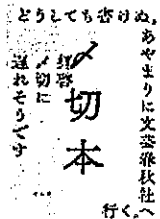 どうしても書けぬ。
あやまりに文藝春秋社へ
行く。
〆切本
拝啓
〆切に
遅れそうです